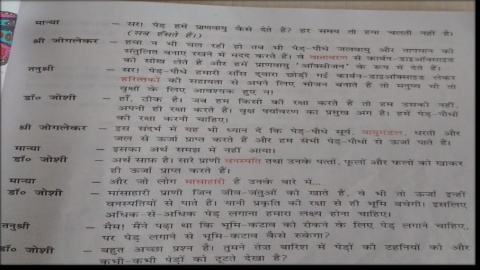 मान्या – सर! पेड़ हमें प्राणवायु कैसे देते हैं? हर समय तो हवा चलती नहीं है।
(सब हँसते हैं।)
श्री जोगलेकर – हवा न भी चल रही हो तब भी पेड़-पौधे जलवायु और तापमान को
संतुलित बनाए रखने में मदद करते हैं। वे वातावरण से कार्बन-डाइऑक्साइड
को सोख लेते हैं और हमें प्राणवायु 'ऑक्सीजन' के रूप में देते हैं।
तनुश्री – सर! पेड़-पौधे हमारी साँस द्वारा छोड़ी गई कार्बन-डाइऑक्साइड लेकर
हरितलवकों की सहायता से अपने लिए भोजन बनाते हैं तो मनुष्य भी तो
वृक्षों के लिए आवश्यक हुए न।
डॉ० जोशी – हाँ, ठीक है। जब हम किसी की रक्षा करते हैं तो हम उसकी नहीं,
अपनी ही रक्षा करते हैं। वृक्ष पर्यावरण का प्रमुख अंग है। हमें पेड़-पौधों
की रक्षा करनी चाहिए।
श्री जोगलेकर – इस संदर्भ में यह भी ध्यान दें कि पेड़-पौधे सूर्य, वायुमंडल, धरती और
जल से ऊर्जा प्राप्त करते हैं और हम सभी पेड़-पौधों से ऊर्जा पाते हैं।
मान्या – इसका अर्थ समझ में नहीं आया।
डॉ० जोशी – अर्थ साफ़ है। सारे प्राणी वनस्पति तथा उनके पत्तों, फूलों और फलों को खाकर
ही ऊर्जा प्राप्त करते हैं।
मान्या – और जो लोग मांसाहारी हैं उनके बारे में...
डॉ० जोशी – मांसाहारी प्राणी जिन जीव-जंतुओं को खाते हैं, वे भी तो ऊर्जा इन्हीं
वनस्पतियों से पाते हैं। यानी प्रकृति की रक्षा से ही भूमि बचेगी। इसलिए
अधिक-से-अधिक पेड़ लगाना हमारा लक्ष्य होना चाहिए।
तनुश्री – मैम! मैंने पढ़ा था कि भूमि-कटाव को रोकने के लिए पेड़ लगाने चाहिए,
पर पेड़ लगाने से भूमि-कटाव कैसे रुकेगा?
डॉ० जोशी – बहुत अच्छा प्रश्न है। तुमने तेज़ बारिश में पेड़ों की टहनियों को और
कभी-कभी पेड़ों को टूटते देखा है?